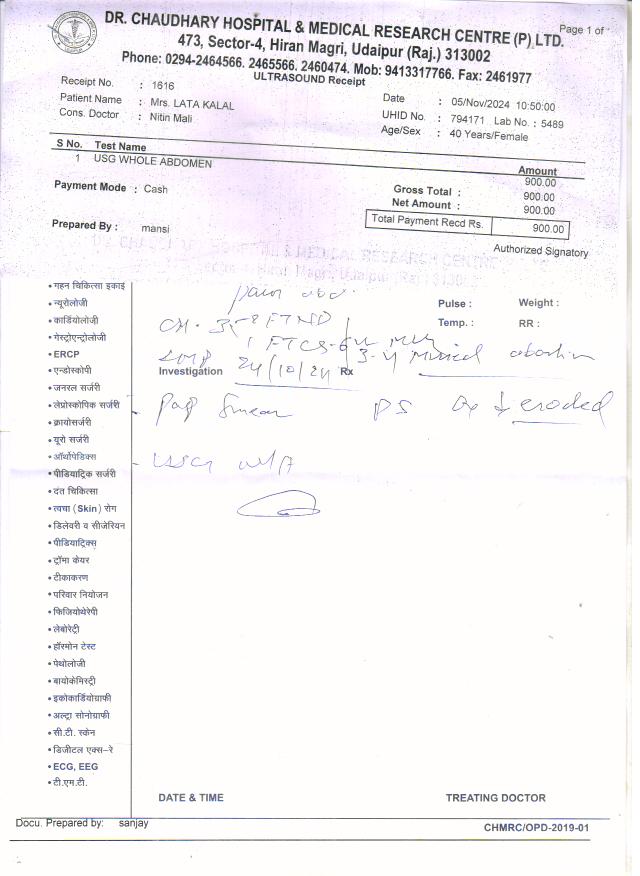 DR. CHAUDHARY HOSPITAL & MEDICAL RESEARCH CENTRE (P) LTD.
Page 1 of
473, Sector-4, Hiran Magri, Udaipur (Raj.) 313002
Phone: 0294-2464566. 2465566. 2460474. Mob: 9413317766. Fax: 2461977
ULTRASOUND Receipt
Receipt No. : 1616
Date : 05/Nov/2024 10:50:00
Patient Name : Mrs. LATA KALAL
UHID No. : 794171 Lab No. : 5489
Cons. Doctor : Nitin Mali
Age/Sex : 40 Years/Female
S No. Test Name Amount
1 USG WHOLE ABDOMEN 900.00
Payment Mode : Cash
Gross Total : 900.00
Net Amount : 900.00
Total Payment Recd Rs. 900.00
Prepared By : mansi
Authorized Signatory
pain abd.
Pulse : Weight :
Temp. : RR :
FTND
FTCS
LMP 24/10/24
abortion
Investigation Rx
Pap Smear PS eroded
USG W/A
• गहन चिकित्सा इकाई
• न्यूरोलोजी
• कार्डियोलोजी
• गेस्ट्रोएन्ट्रोलोजी
• ERCP
• एन्डोस्कोपी
• जनरल सर्जरी
• लेप्रोस्कोपिक सर्जरी
• क्रायोसर्जरी
• यूरो सर्जरी
• ऑर्थोपेडिक्स
• पीडियाट्रिक सर्जरी
• दंत चिकित्सा
• त्वचा (Skin) रोग
• डिलेवरी व सीजेरियन
• पीडियाट्रिक्स
• ट्रॉमा केयर
• टीकाकरण
• परिवार नियोजन
• फिजियोथेरेपी
• लेबोरेट्री
• हॉरमोन टेस्ट
• पेथोलोजी
• बायोकेमिस्ट्री
• इकोकार्डियोग्राफी
• अल्ट्रा सोनोग्राफी
• सी.टी. स्केन
• डिजीटल एक्स-रे
• ECG, EEG
• टी.एम.टी.
DATE & TIME TREATING DOCTOR
Docu. Prepared by: sanjay
CHMRC/OPD-2019-01